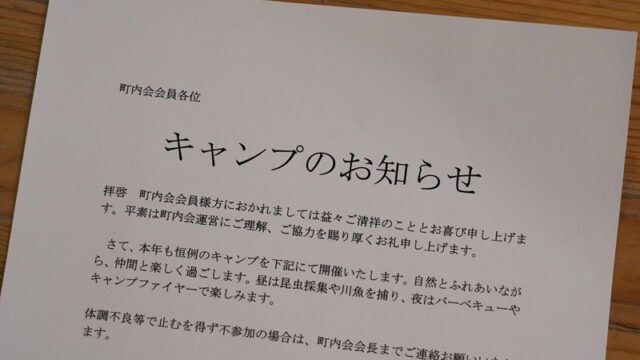 町内会会員各位
キャンプのお知らせ
拝啓　町内会会員様方におかれましては益々ご清祥のこととお喜び申し上げま
す。平素は町内会運営にご理解、ご協力を賜り厚くお礼申し上げます。
さて、本年も恒例のキャンプを下記にて開催いたします。自然とふれあいなが
ら、仲間と楽しく過ごします。昼は昆虫採集や川魚を捕り、夜はバーベキューや
キャンプファイヤーで楽しみます。
体調不良等で止むを得ず不参加の場合は、町内会会長までご連絡お願いいたし
ます。